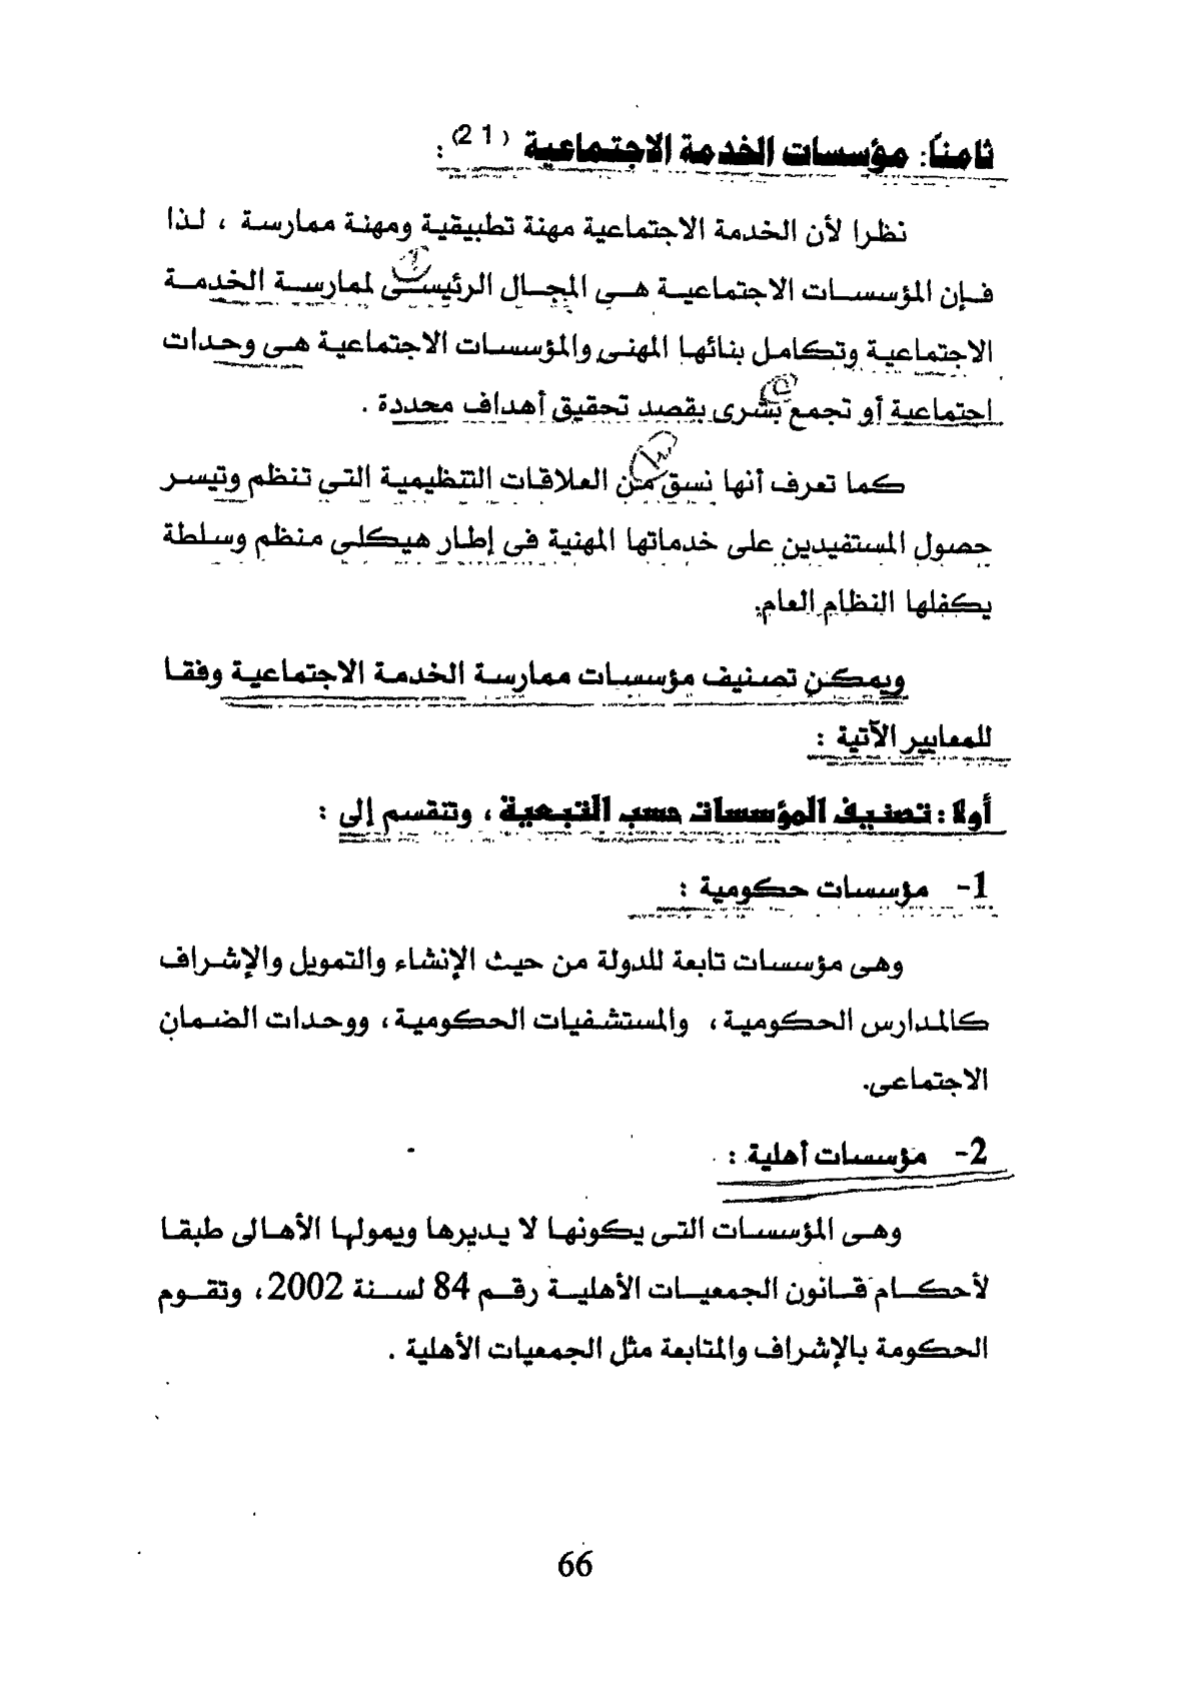 ثامناً: مؤسسات الخدمة الاجتماعية (21) :
نظرا لأن الخدمة الاجتماعية مهنة تطبيقية ومهنة ممارسة ، لذا
فإن المؤسسات الاجتماعية هى المجال الرئيسى لممارسة الخدمة
الاجتماعية وتكامل بنائها المهنى والمؤسسات الاجتماعية هى وحدات
اجتماعية أو تجمع بشرى بقصد تحقيق أهداف محددة .
كما تعرف أنها نسق من العلاقات التنظيمية التى تنظم وتيسر
حصول المستفيدين على خدماتها المهنية فى إطار هيكلى منظم وسلطة
يكفلها النظام العام.
ويمكن تصنيف مؤسسات ممارسة الخدمة الاجتماعية وفقا
للمعايير الآتية :
أولا : تصنيف المؤسسات حسب التبعية ، وتنقسم إلى :
1- مؤسسات حكومية :
وهى مؤسسات تابعة للدولة من حيث الإنشاء والتمويل والإشراف
كالمدارس الحكومية ، والمستشفيات الحكومية ، ووحدات الضمان
الاجتماعى.
2- مؤسسات أهلية :
وهى المؤسسات التى يكونها لا يديرها ويمولها الأهالى طبقا
لأحكام قانون الجمعيات الأهلية رقم 84 لسنة 2002 ، وتقوم
الحكومة بالإشراف والمتابعة مثل الجمعيات الأهلية .
66